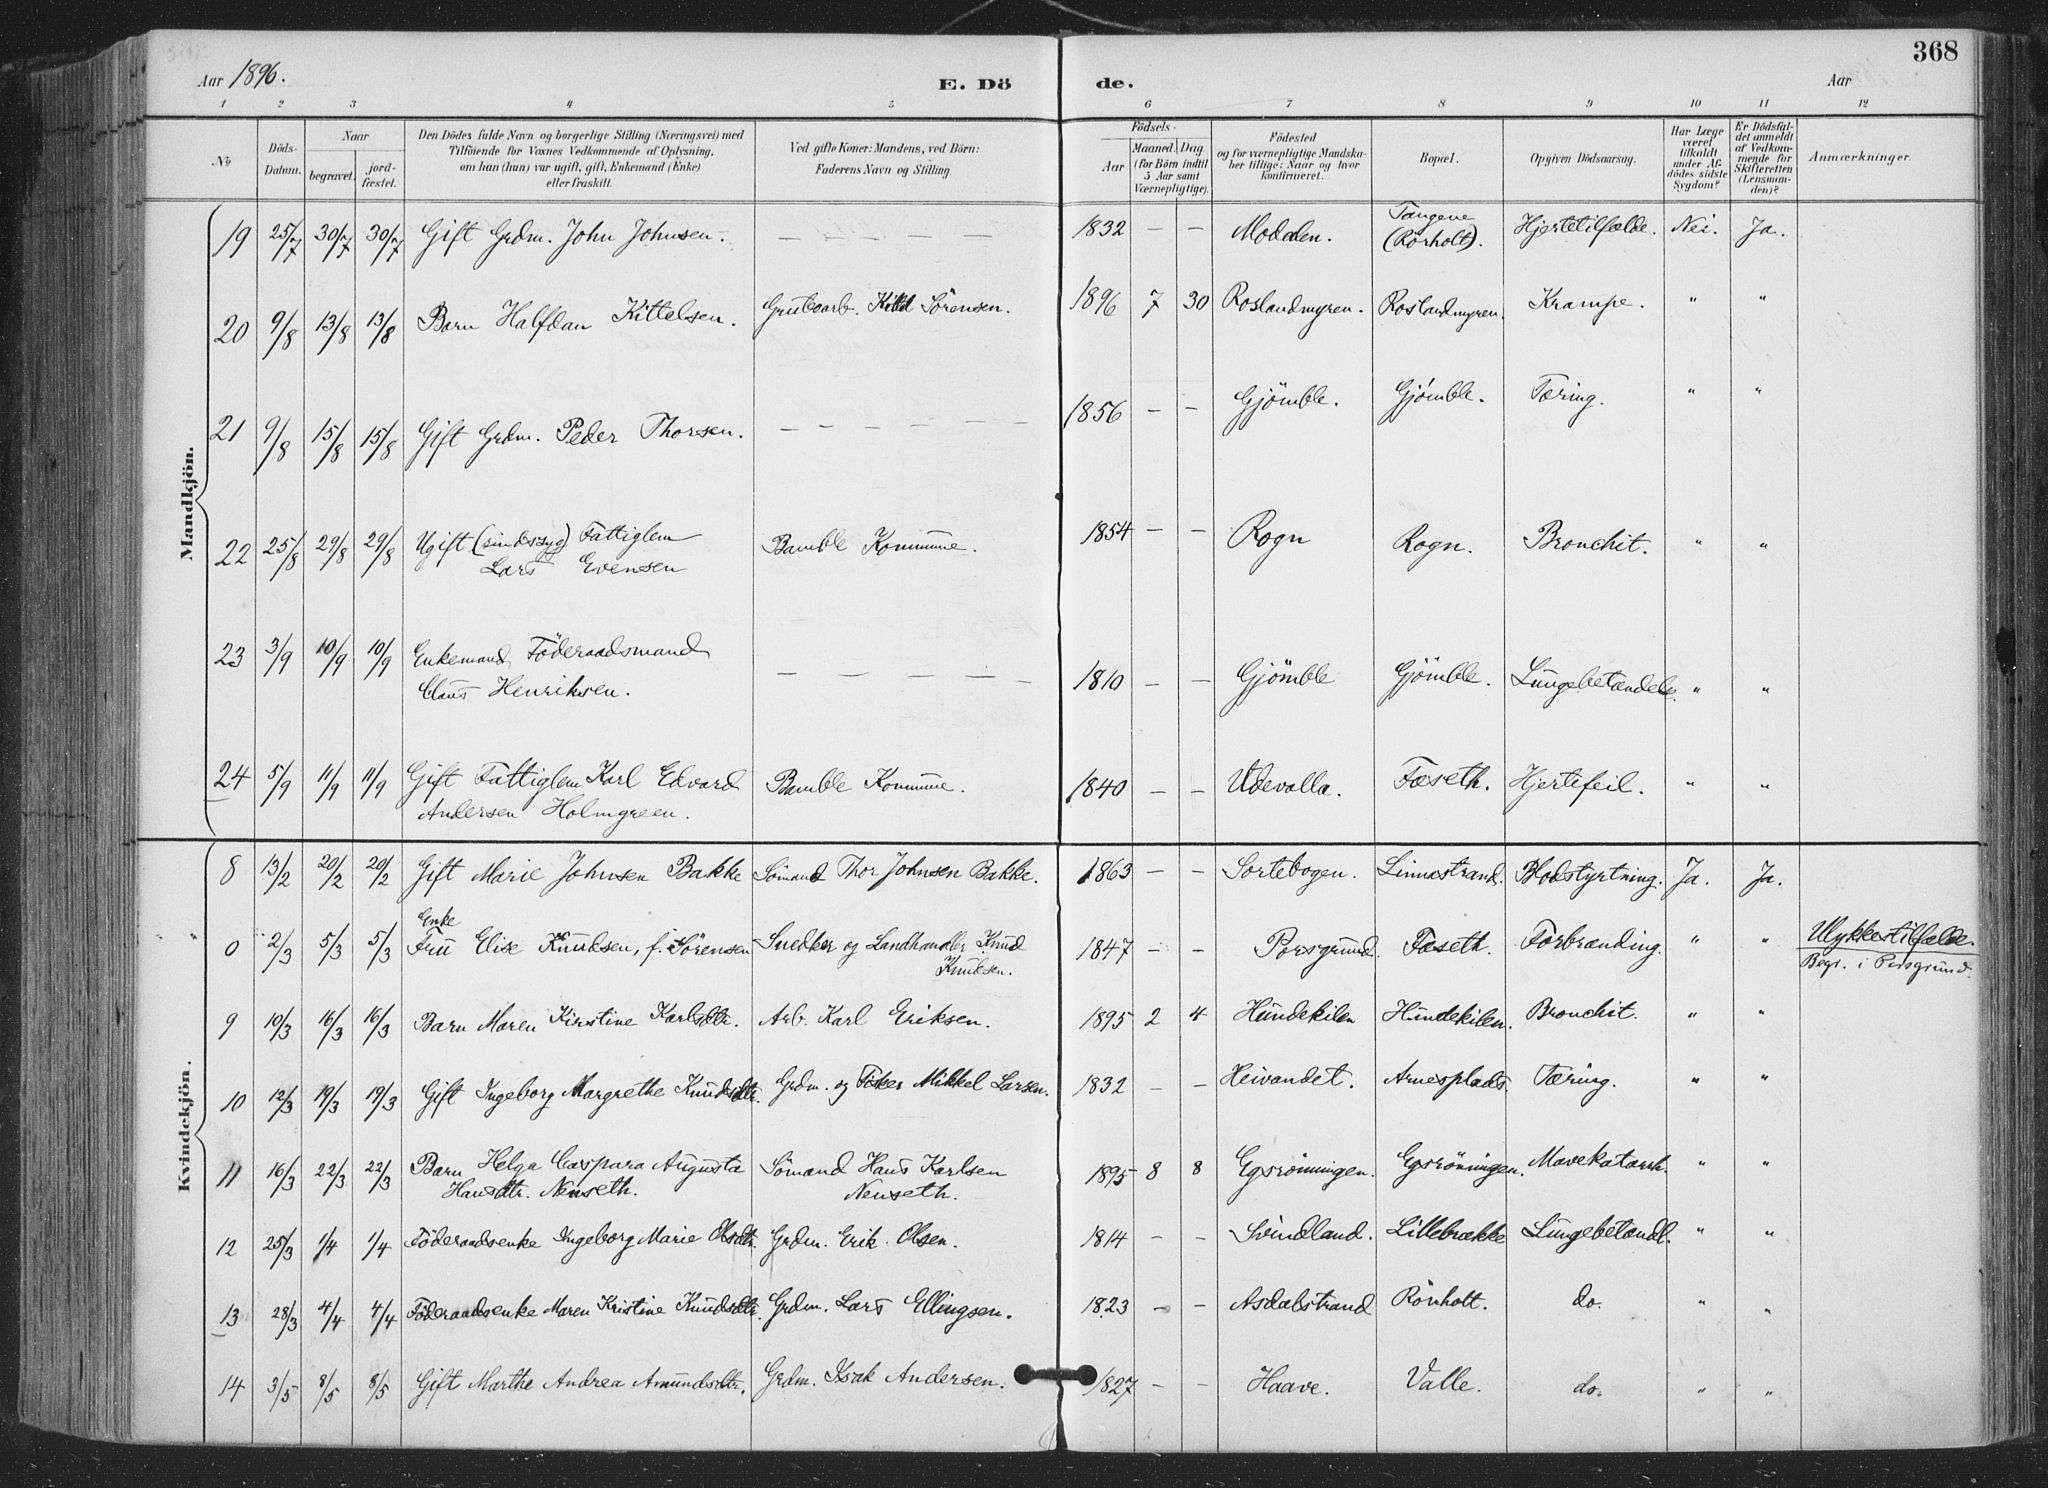 368
Aar 1896. E. Dö de. Aar
1 2 3 4 5 6 7 8 9 10 11 12
No Döds-Datum. Naar begravet. jord-fæstet. Den Dödes fulde Navn og borgerlige Stilling (Næringsvei) med Tilföiende for Voxnes Vedkommende af Oplysning, om han (hun) var ugift, gift, Enkemand (Enke) eller fraskilt. Ved gifte Koner: Mandens, ved Börn: Faderens Navn og Stilling. Födsels- Aar Maaned Dag (for Börn indtil 5 Aar samt Værnepligtige). Födested og for værnepligtige Mandskaber tillige: Naar og hvor konfirmeret. Bopæl. Opgiven Dödsaarsag. Har Læge været tilkaldt under Afdödes sidste Sygdom? Er Dödsfaldet anmeldt af Vedkommende for Skifteretten (Lensmanden)? Anmærkninger.
Mandkjön.
19 25/7 30/7 30/7 Gift Grdm. John Johnsen. — — — — — 1832 — — Modalen. Tangene (Rörholt). Hjertetilfælde. Nei. Ja.
20 9/8 13/8 13/8 Barn Halfdan Kittelsen. Grubearb. Kittel Sörensen. 1896 7 30 Roslandmyren. Roslandmyren. Krampe. " "
21 9/8 15/8 15/8 Gift Grdm. Peder Thorsen. — — — — — — 1856 — — Gjömble. Gjömble. Tæring. " "
22 25/8 29/8 29/8 Ugift (sindssyg) Fattiglem Bamble Kommune. 1854 — — Rogn Rogn. Bronchit. " "
Lars Evensen
23 3/9 10/9 10/9 Enkemand Föderaadsmand — — — — — — 1810 — — Gjömble Gjömble. Lungebetændels. " "
Claus Henriksen.
24 5/9 11/9 11/9 Gift Fattiglem Karl Edvard Bamble Kommune. 1840 — — Udevalla. Foseth. Hjertefeil. " "
Andersen Holmgreen.
Kvindekjön.
8 13/2 20/2 20/2 Gift Marie Johnsen Bakke Sömand Thor Johnsen Bakke. 1863 — — Sortebogen. Linnestrand. Blodstyrtning. Ja. Ja.
Enke
0 2/3 5/3 5/3 Fru Elise Knudsen, f. Sörensen Snedker og Landhandler Knud Knudsen. 1847 — — Porsgrund. Foseth. Forbrænding. " " Ulykkestilfælde.
Begr. i Porsgrund.
9 10/3 16/3 16/3 Barn Maren Kirstine Karlsdtr. Arb. Karl Eriksen. 1895 2 4 Hundekilen Hundekilen. Bronchit. " "
10 12/3 19/3 19/3 Gift Ingeborg Margrethe Knudsdtr. Grdm. og Fisker Mikkel Larsen. 1832 — — Heivandet. Arnesplads. Tæring. " "
11 16/3 22/3 22/3 Barn Helga Caspara Augusta Sömand Hans Karlsen 1895 8 8 Egsrönningen. Egsrönningen. Mavekatarrh. " "
Hansdtr. Nenseth. Nenseth.
12 25/3 1/4 1/4 Föderaadsenke Ingeborg Marie Olsdtr. Grdm. Erik Olsen. 1814 — — Svindland. Lillebrække Lungebetændl. " "
13 28/3 4/4 4/4 Föderaadsenke Maren Kristine Knudsdtr. Grdm. Lars Ellingsen. 1823 — — Asdalstrand Rörholt. do. " "
14 3/5 8/5 8/5 Gift Marthe Andrea Amundsdtr. Grdm. Isak Andersen. 1827 — — Haave. Valle. do. " "